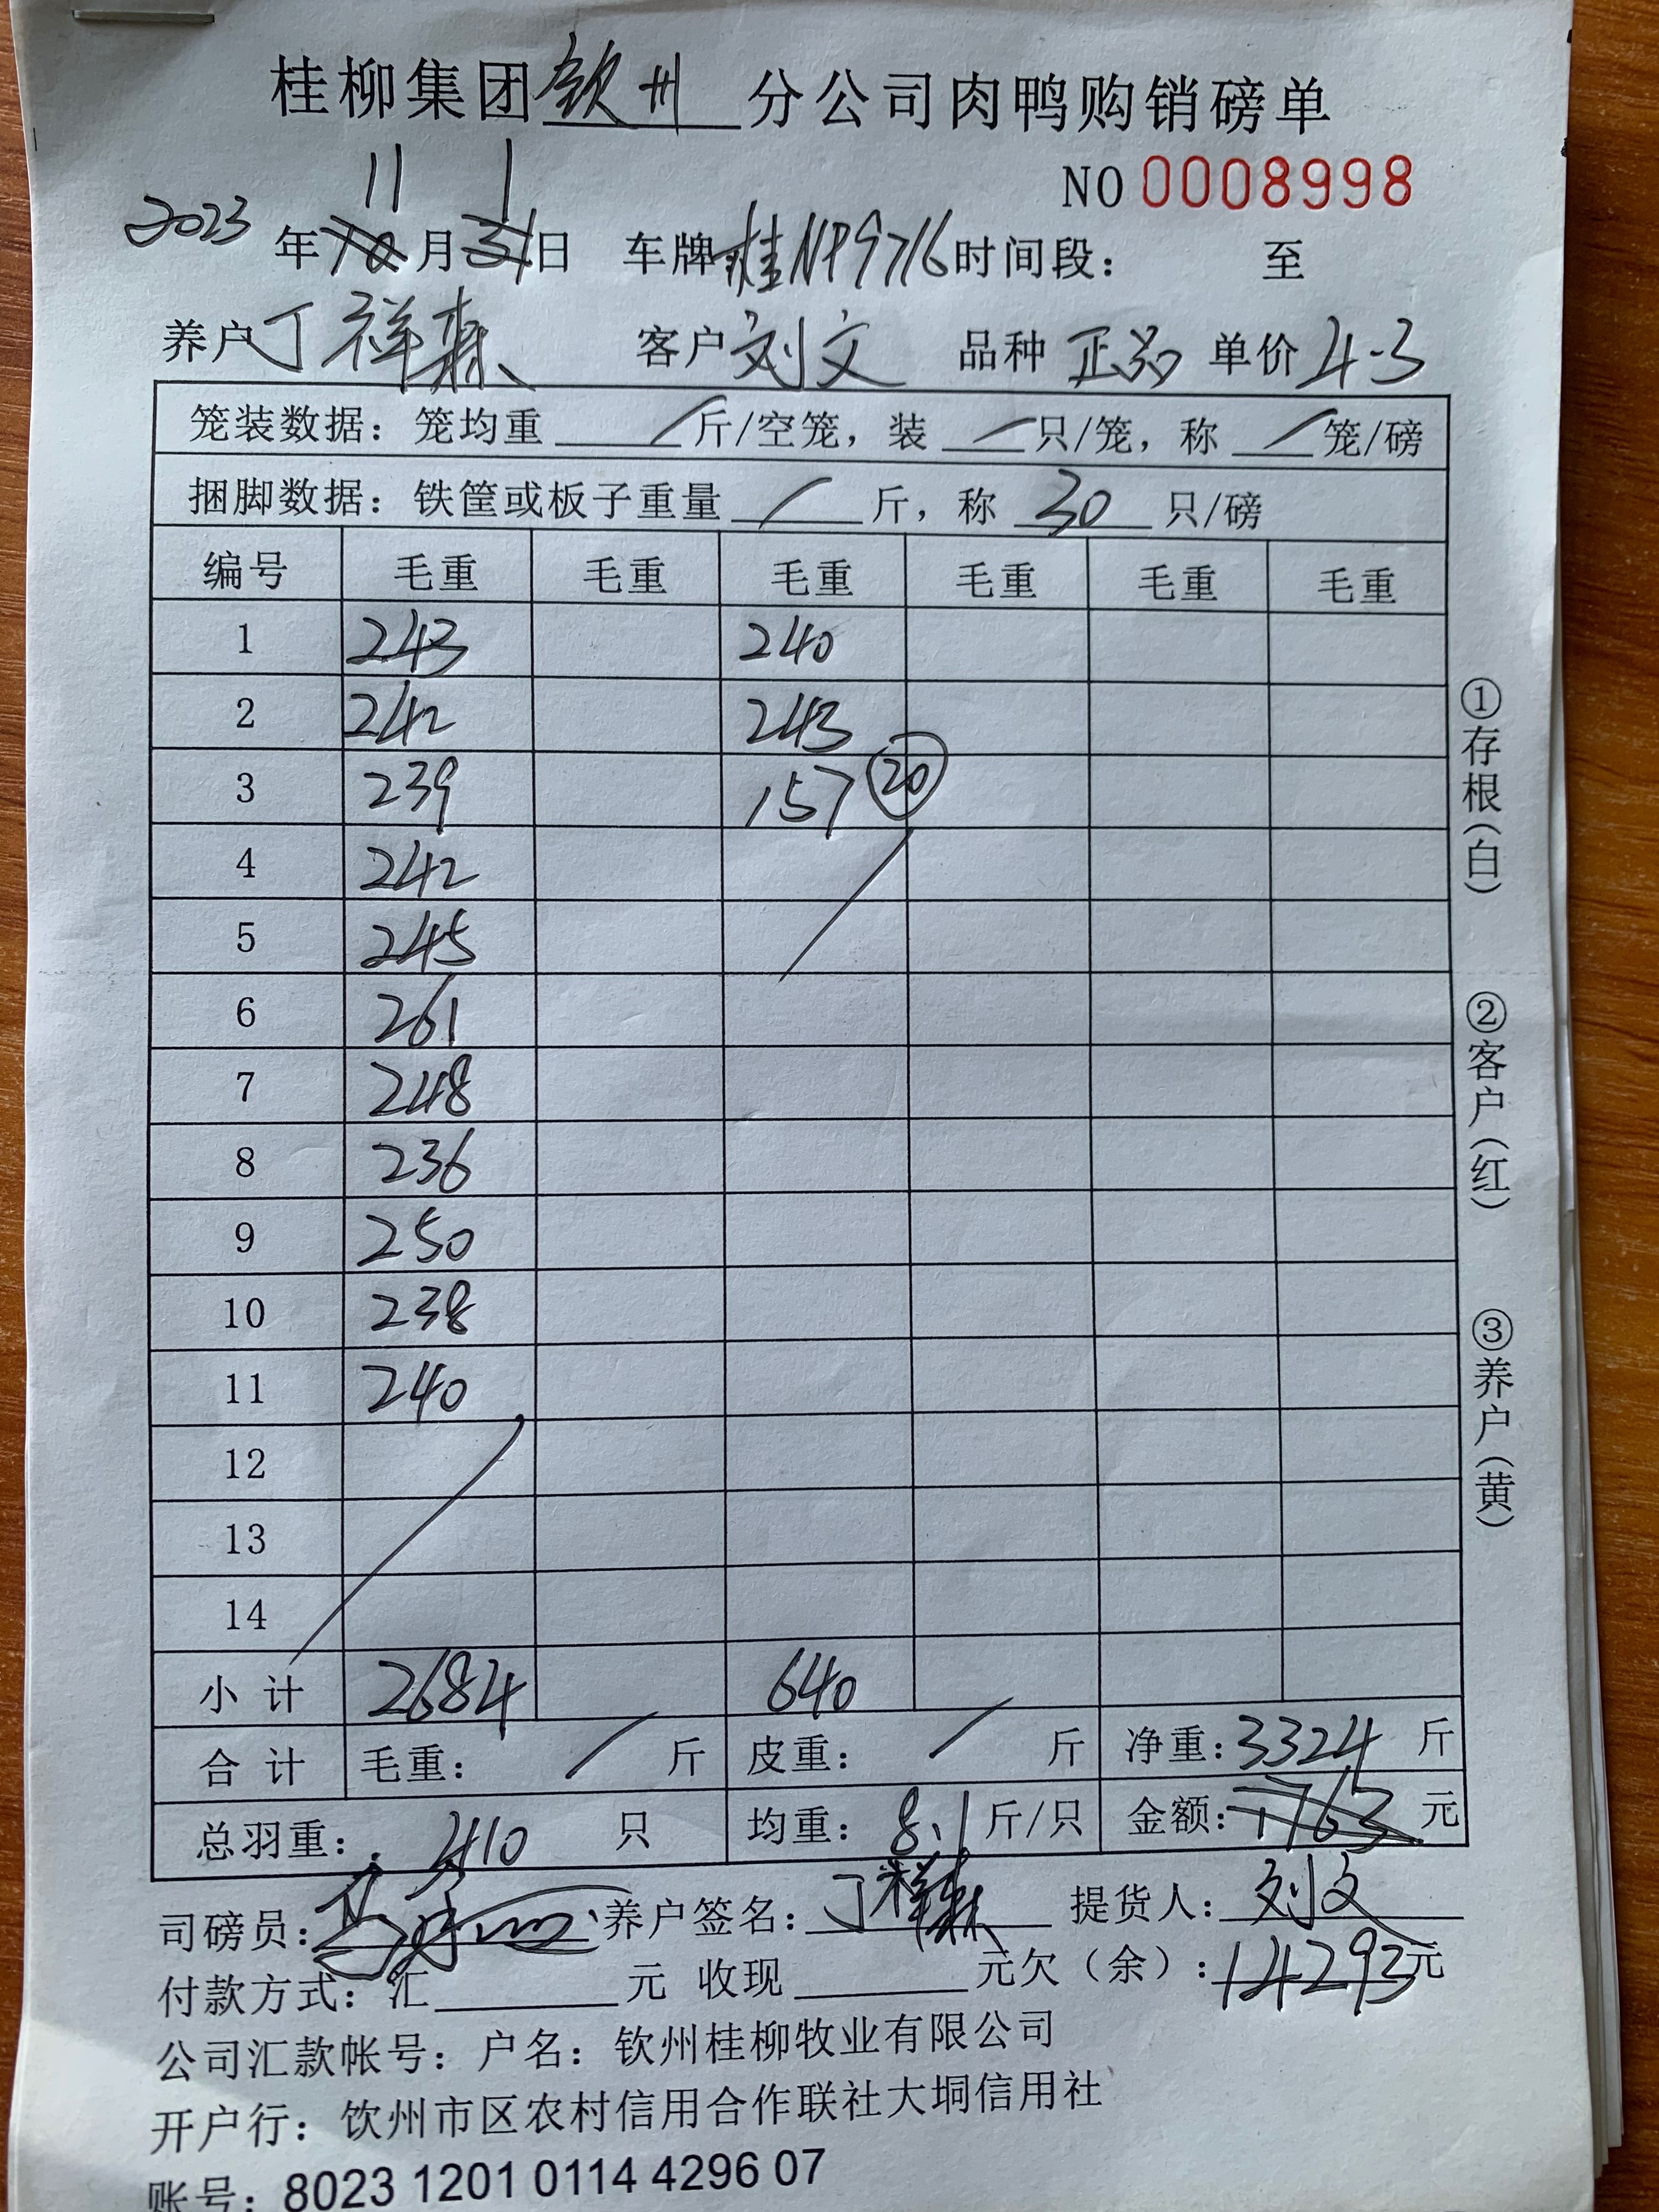 桂柳集团钦州分公司肉鸭购销磅单
NO 0008998
11 1
2023年10月31日 车牌桂NP9716时间段： 至
养户丁祥森 客户刘文 品种正品 单价4.3
笼装数据：笼均重／斤/空笼，装／只/笼，称／笼/磅
捆脚数据：铁筐或板子重量／斤，称30只/磅
编号 毛重 毛重 毛重 毛重 毛重 毛重
1 243 240
2 242 243
3 239 157 20
4 242
5 245
6 261
7 248
8 236
9 250
10 238
11 240
12
13
14
小计 2684 640
合计 毛重：／斤 皮重：／斤 净重：3324斤
总羽重：410只 均重：8.1斤/只 金额：元
司磅员： 养户签名：丁祥森 提货人：刘文
付款方式：汇 元 收现 元欠（余）：14293元
公司汇款帐号：户名：钦州桂柳牧业有限公司
开户行：钦州市区农村信用合作联社大垌信用社
账号：8023 1201 0114 4296 07
①存根（白）
②客户（红）
③养户（黄）